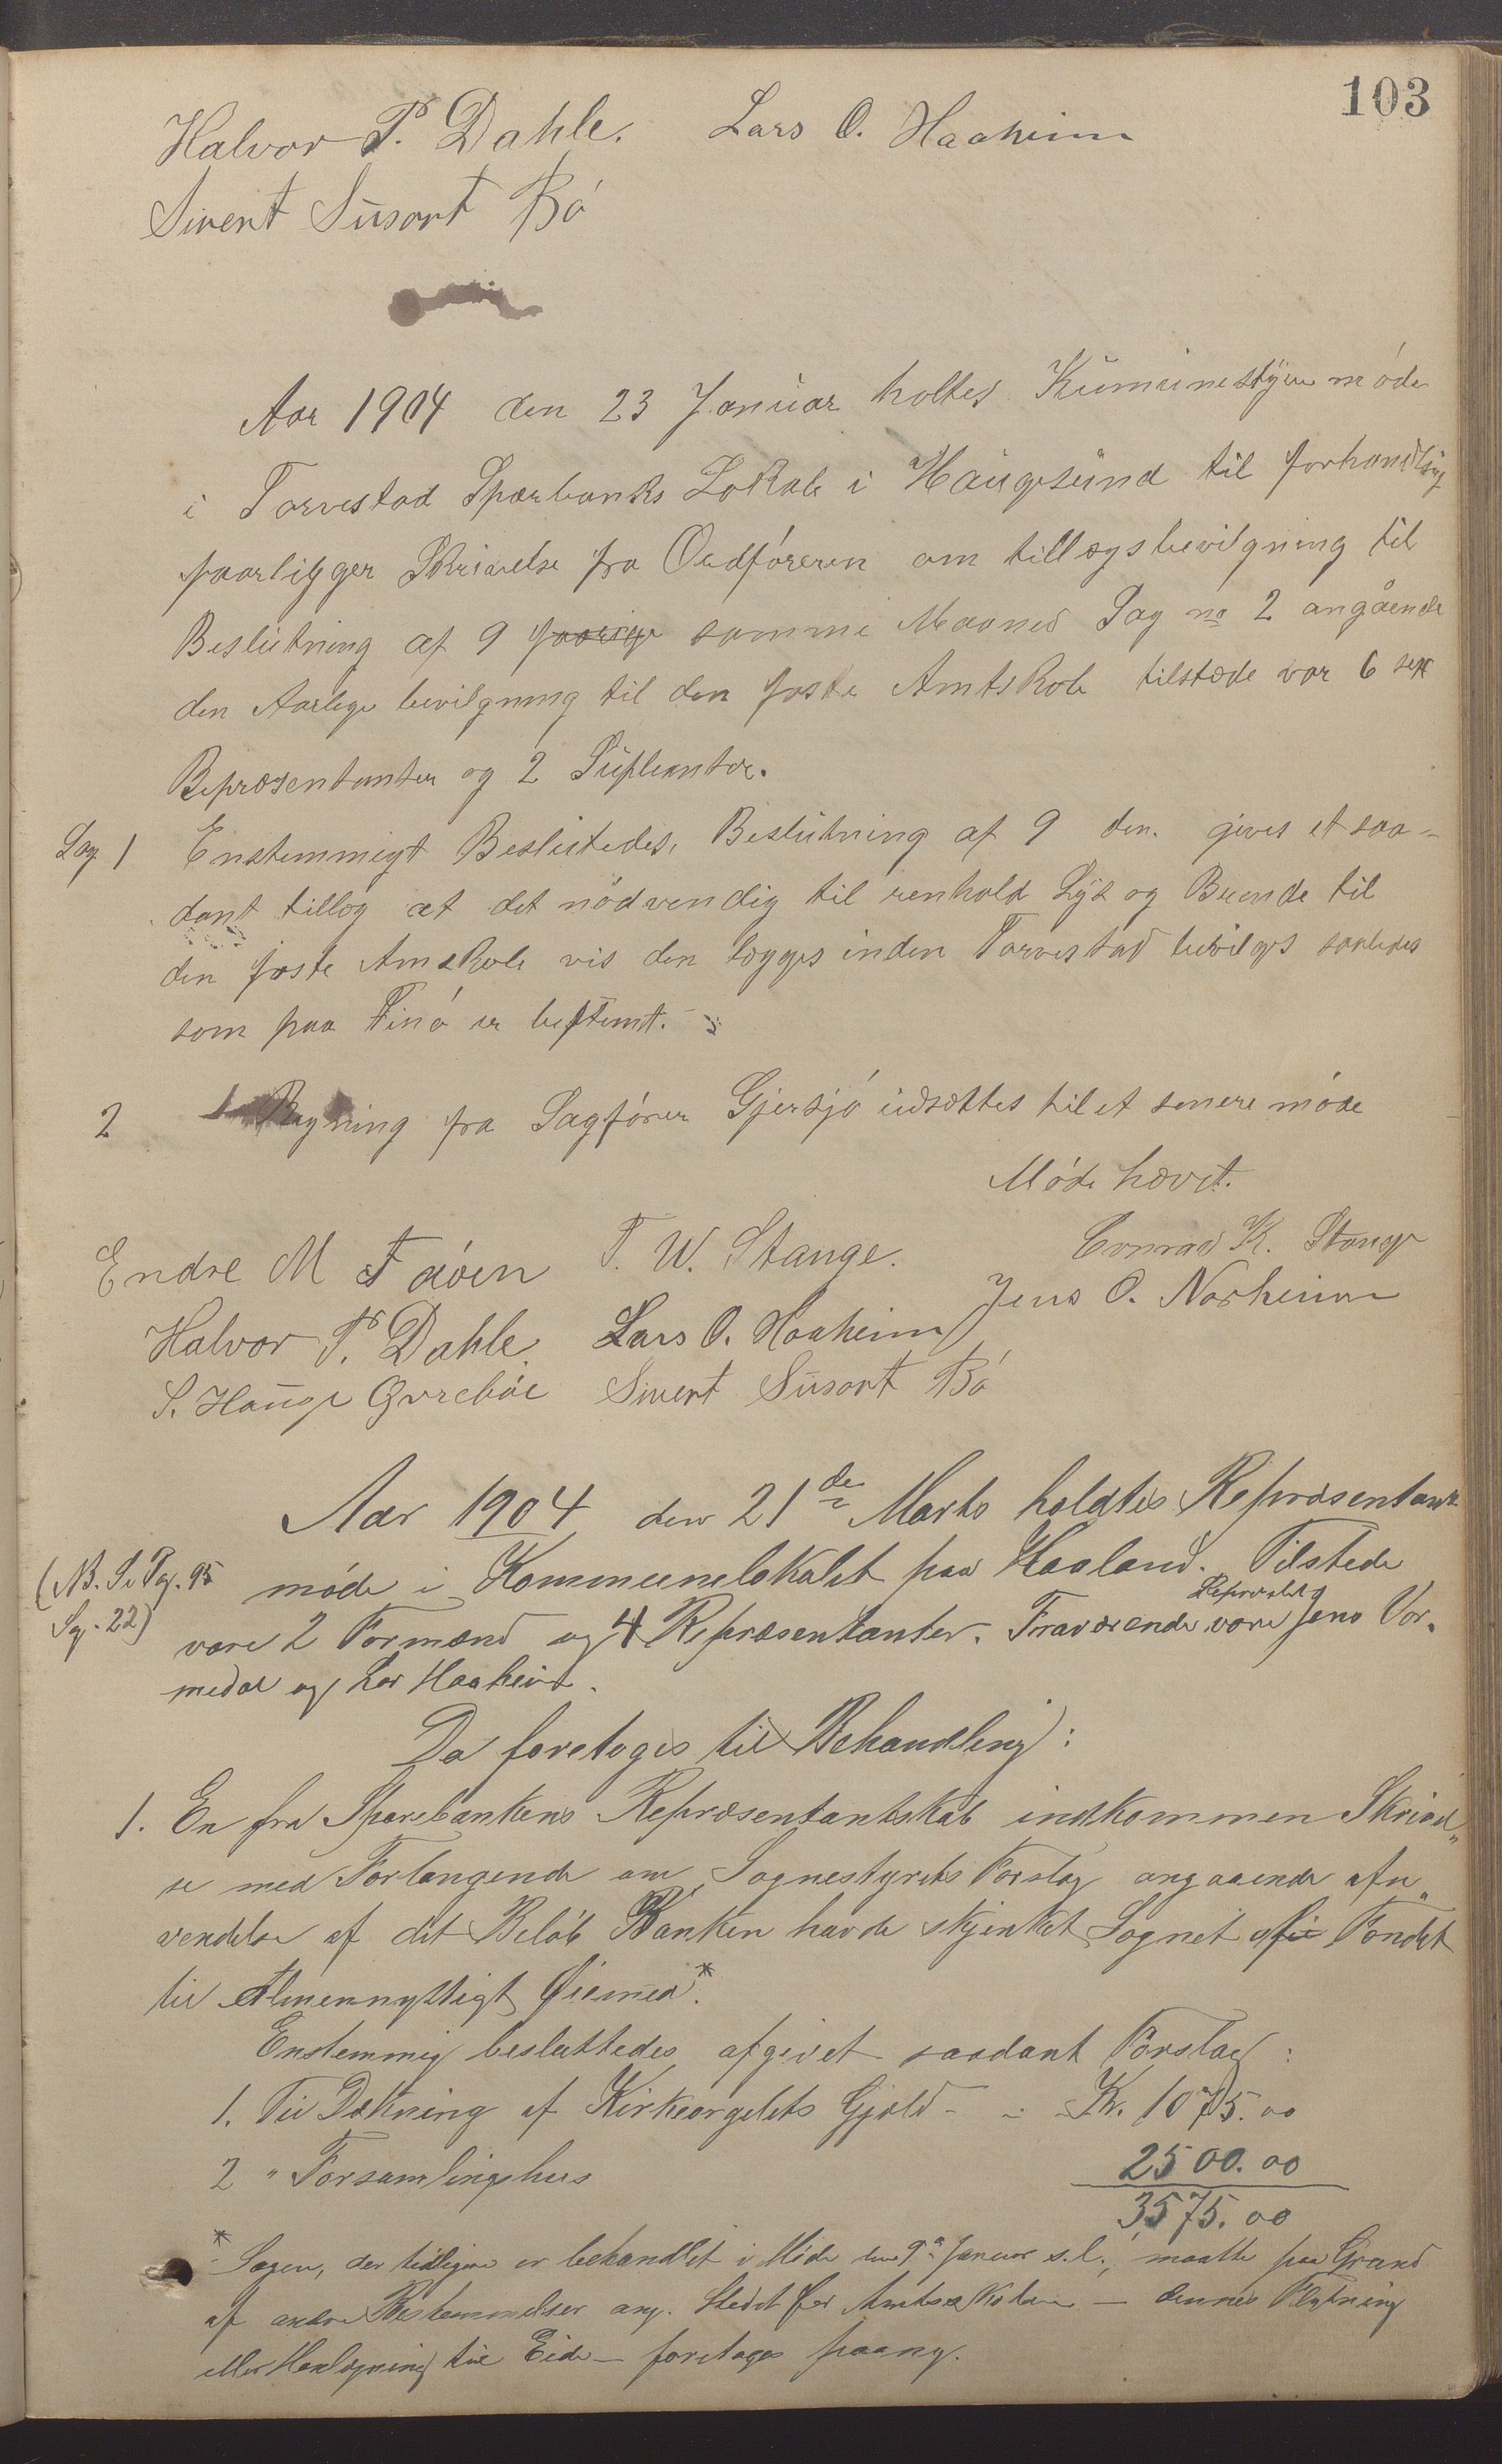 103
Halvor P. Dahle. Lars O. Haaheim
Sivert Susort Bö
Aar 1904 den 23 Januar holtes Kumunestyre möde
i Torvestad Sparbanks Lokale i Haugesund til forhandling
foorligger Skrivelse fra Ordföreren om tillægsbevilgning til
Beslutning af 9 samme Maaned Sag no 2 angående
den Aarlige bevilgning til den faste Amtskole tilstæde var 6 sex
Repræsentanter og 2 Supleanter.
Sag 1 Enstemmigt Beslutedes, Beslutning af 9 den. gives et saa-
dant tillæg at det nödvendig til renhold Lys og Brende til
den faste Amskole vis den lægges inden Torvestad bevilges saaledes
som paa Finö er bestemt.
2 Regning fra Sagförer Gjersjö udsættes til et senere möde
Möde hævet.
Endre M Faöen T. W. Stange. Conrad K. Stange
Halvor P. Dahle. Lars O. Haaheim Jens O. Norheim
S. Hauge Qvreböe Sivert Susort Bö
Aar 1904 den 21de Marts holdtes Repræsentant
(NB. Se Pag. 95 möde i Kommunelokalet paa Haaland. Tilstede
Sag. 22) vare 2 Formænd og 4 Repræsentanter. Fraværende vare Jens Vor-
medal og Lar Haaheim.
Da foretoges til Behandling:
1. En fra Sparebankens Repræsentantskab indkommen Skrivel„
se med Forlangende om Sognestyrets Forslag angaaende afn„
vendelse af det Belöb Banken havde skjenket Sognet af Fondet
til Almennyttigt Öiemed*.
Enstemmig besluttedes afgivet saadant Forslag:
1. Til Dækning af Kirkeorgelets Gjæld - - Kr. 1075.00
2 " Forsamlingshus 2500.00
3575.00
* Sagen, der tidligere er behandlet i Möde den 9de Januar s.l., maatte paa Grund
af andre Bestemmelser ang. Stedet for Amtsskolen — dennes Flytning
eller Henlægning til Eide — foretages paany.